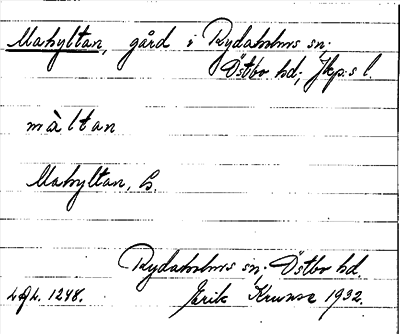 Mahyltan, gård i Rydaholms sn.
Östbo hd; Jkp:s l.
màltan
Mahyltan, b.
Rydaholms sn; Östbo hd.
Erik 1932.